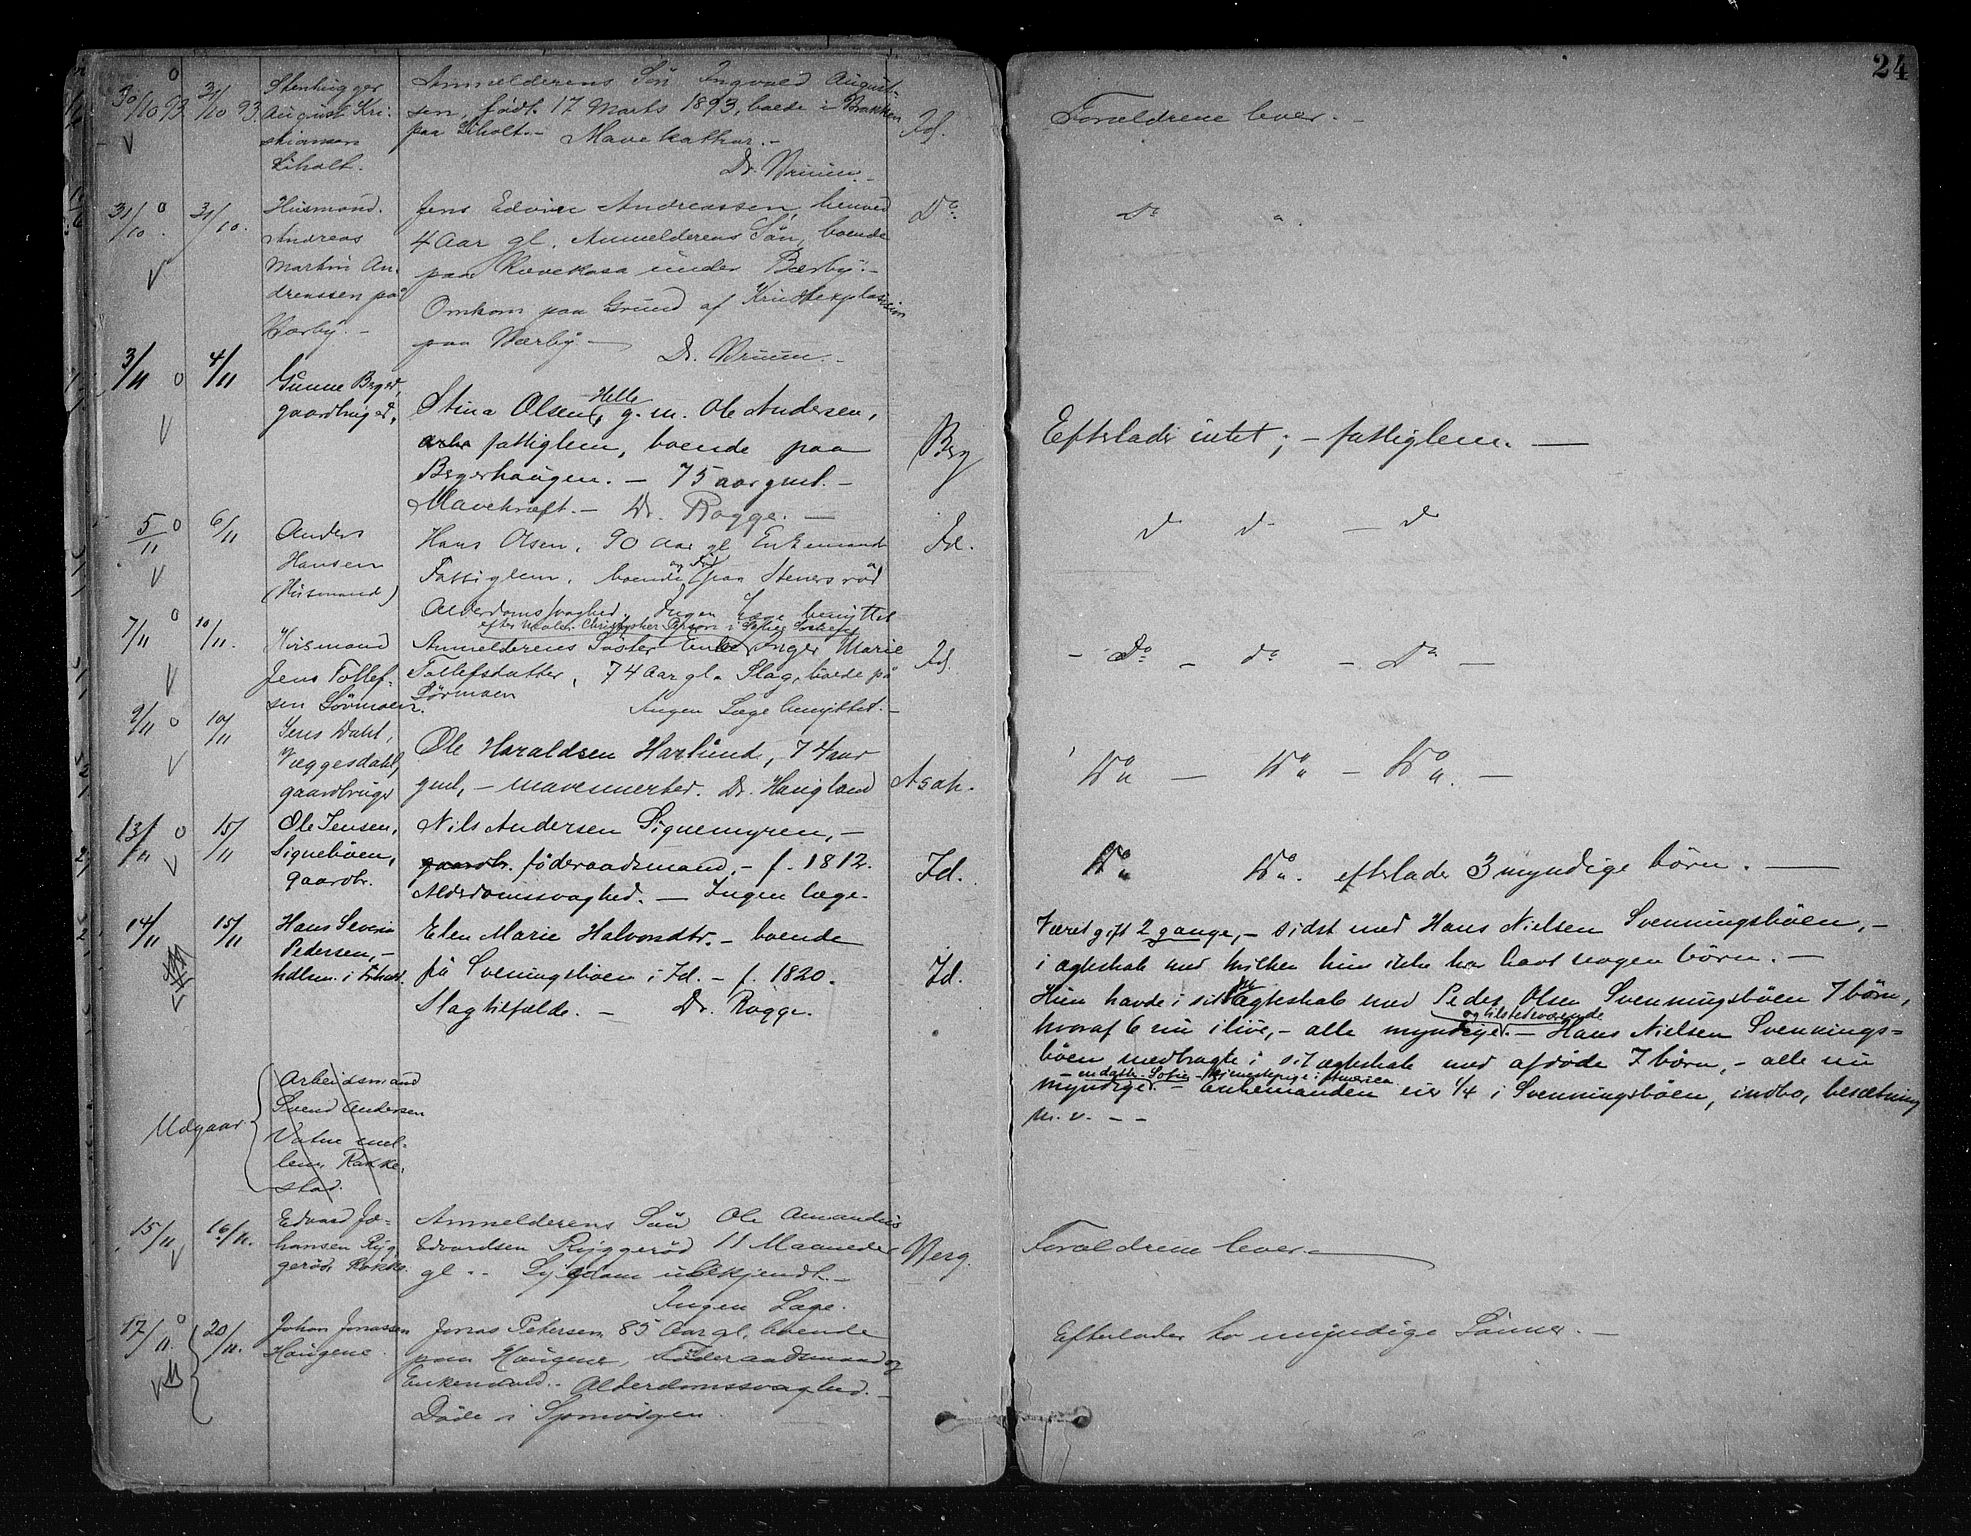 24
30/10 93. 31/10 93. Stenhugger
August Kri-
stiansen
Liholt.
Anmelderens Sön Ingvald August-
sen, født 17 Marts 1893, boede i Brakken
paa Liholt.- Mavekathar.-
Dr. Bruun.-
Id.
Forældrene lever.-
31/10. 31/10. Husmand.
Andreas
Martin An-
dreassen på
Bærby.-
Jens Edvin Andreassen, henved
4 Aar gl. Anmelderens Sön, boende
paa Revekasa under Bærby.-
Omkom paa Grund af Krudtexplosion
paa Bærby.- Dr. Bruun.-
Do.
Do "
3/11 4/11 Gunne Berger,
gaardbruger,
Stina Olsen, Helle g. m. Ole Andersen,
fattiglem, boende paa
Bergerhaugen. - 75 aar gml. -
Mavekræft. - Dr. Rogge. -
Berg
Efterlader intet; - fattiglem. -
5/11 6/11 Anders
Hansen
(Husmand)
Hans Olsen, 90 Aar gl Enkemand
Fattiglem, boende og Död paa Stenersröd
Alderdomssvaghed, Ingen Læge benyttet
Id.
d d - d
7/11 10/11. Husmand
Jens Tollef-
sen Sörmoen.
efter Christopher
Anmelderens Söster Enke Inger Marie
Tollefsdatter, 74 Aar gl. Slag, boede på
Sörmoen
Ingen Læge benyttet.-
Id.
- Do - do - Do -
9/11 10/11 Jens Dahl,
Væggesdahl,
gaardbruger
Ole Haraldsen Harlund, 74 aar
gml, - mavenmerter. Dr. Haugland
Asak.
Do - Do - Do. -
13/11 15/11 Ole Jensen,
Signebøen,
gaardbr.
Nils Andersen Signemyren, -
gaardbr. föderaadsmand, - f. 1812.
Alderdomssvaghed. - Ingen læge.
Id.
Do Do. efterlader 3 myndige börn. -
14/11 15/11 Hans Severin
Pedersen, -
hdlsm. i Frhald.
Elen Marie Halvorsdtr. - boende
på Sveningsböen i Id. - f. 1820.
Slagtilfælde. - Dr. Rogge.
Id.
Været gift 2 gange, - sidst med Hans Nielsen Svenningsböen, -
i ægteskab med hvilken hun ikke har havt nogen börn. -
Hun havde i sit ægteskab med Peder Olsen Svenningsböen 7 börn,
og tilstedeværende
hvoraf 6 nu ilive, - alle myndige. - Hans Nielsen Svennings-
böen medbragte i sit ægteskab med afdöde 7 börn, - alle nu
- en datter Sofie - tjenestepige i America.
myndige. - Enkemanden eier 1/4 i Svenningsböen, indbo, besætning
m. v. - -
Udgaar
Arbeidsmand
Svend Andersen
Vatne mel-
lem, Rakke-
stad.
15/11 16/11. Edvard Jo-
hansen Ryg-
geröd, Rokke.
Anmelderens Sön Ole Amandus
Edvardsen Ryggeröd 11 Maaneder
gl. - Sygdom ubekjendt.-
Ingen Læge.
Berg.
Forældrene lever.-
17/11. 20/11. Johan Jonassen
Haugene.
Jonas Petersen, 85 Aar gl, boende
paa Haugene, Föderaadsmand og
Enkemand.- Alderdomssvaghed.-
Döde i Sponvigen.
Efterlader to myndige Sönner.-